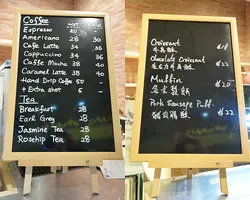 Coffee
Espresso 20 -
Americano 28 30
Cafe Latte 34 36
Cappuccino 34 36
Caffe Mocha 38 40
Caramel Latte 38 40
Hand Drip Coffee 50
+ Extra shot 5 -
Tea
Breakfast 28
Earl Grey 28
Jasmine Tea 28
Rosehip Tea 28
Croissant $18
牛角酥
chocolate Croissant $22
朱古力牛角酥
Muffin $20
Pork Sausage Puff $22
鹹肉腸酥